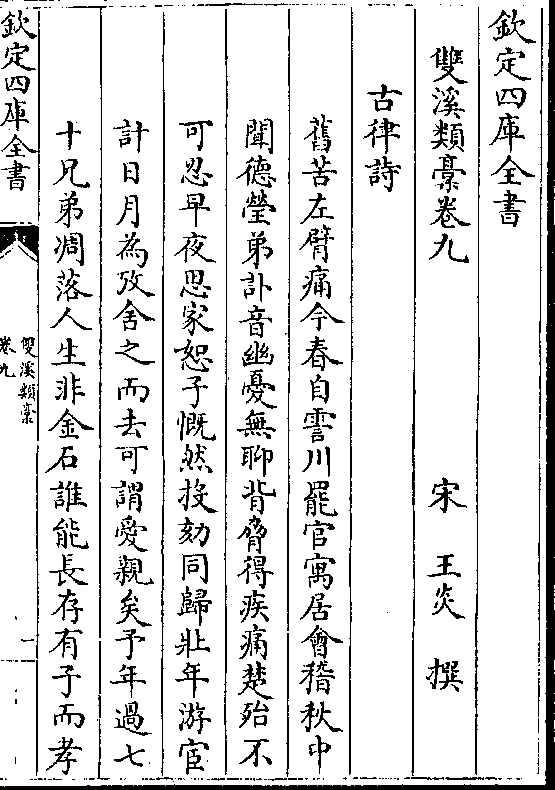 欽定四庫全書
雙溪類稾卷九
宋 王炎 撰
古律詩
舊苦左臂痛今春自霅川罷官寓居會稽秋中
聞德瑩弟訃音幽憂無聊背脅得疾痛楚殆不
可忍早夜思家恕子慨然投劾同歸壯年游宦
計日月為攷舍之而去可謂愛親矣予年過七
十兄弟凋落人生非金石誰能長存有子而孝
欽定四庫全書
雙溪類稾
卷九
一